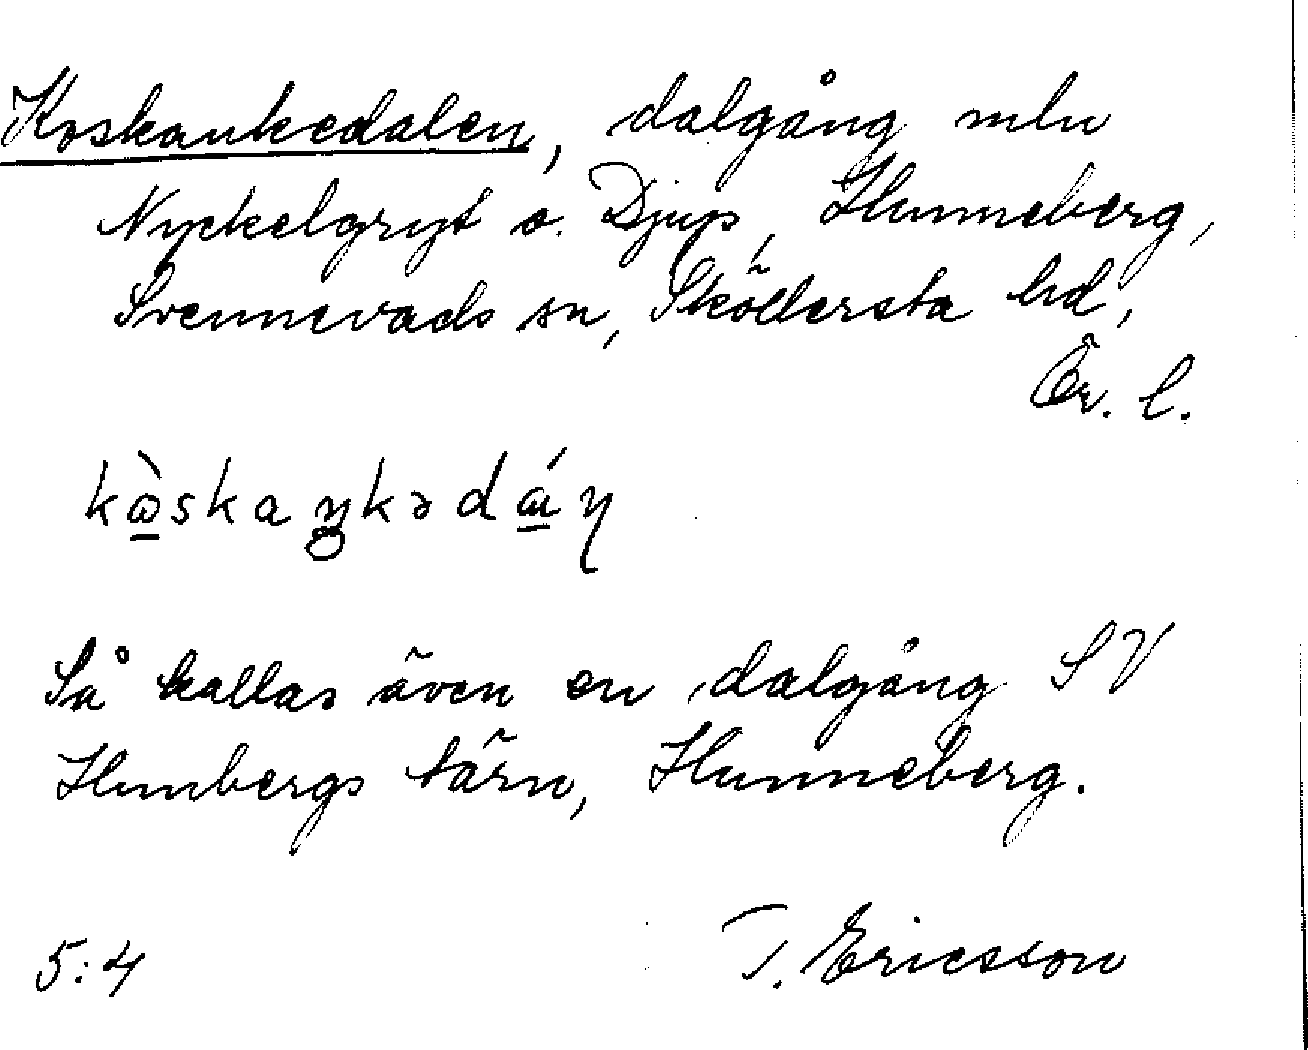 Koskankedalen, dalgång mln
Nyckelgryt o. Djup, Hunneberg,
Svennevads sn, Sköllersta hd,
Ör. l.
kɷ̀skaŋkədɑ́ɳ
Så kallas även en dalgång SV
Hunbergs tärn, Hunneberg.
5:4 T. Ericsson